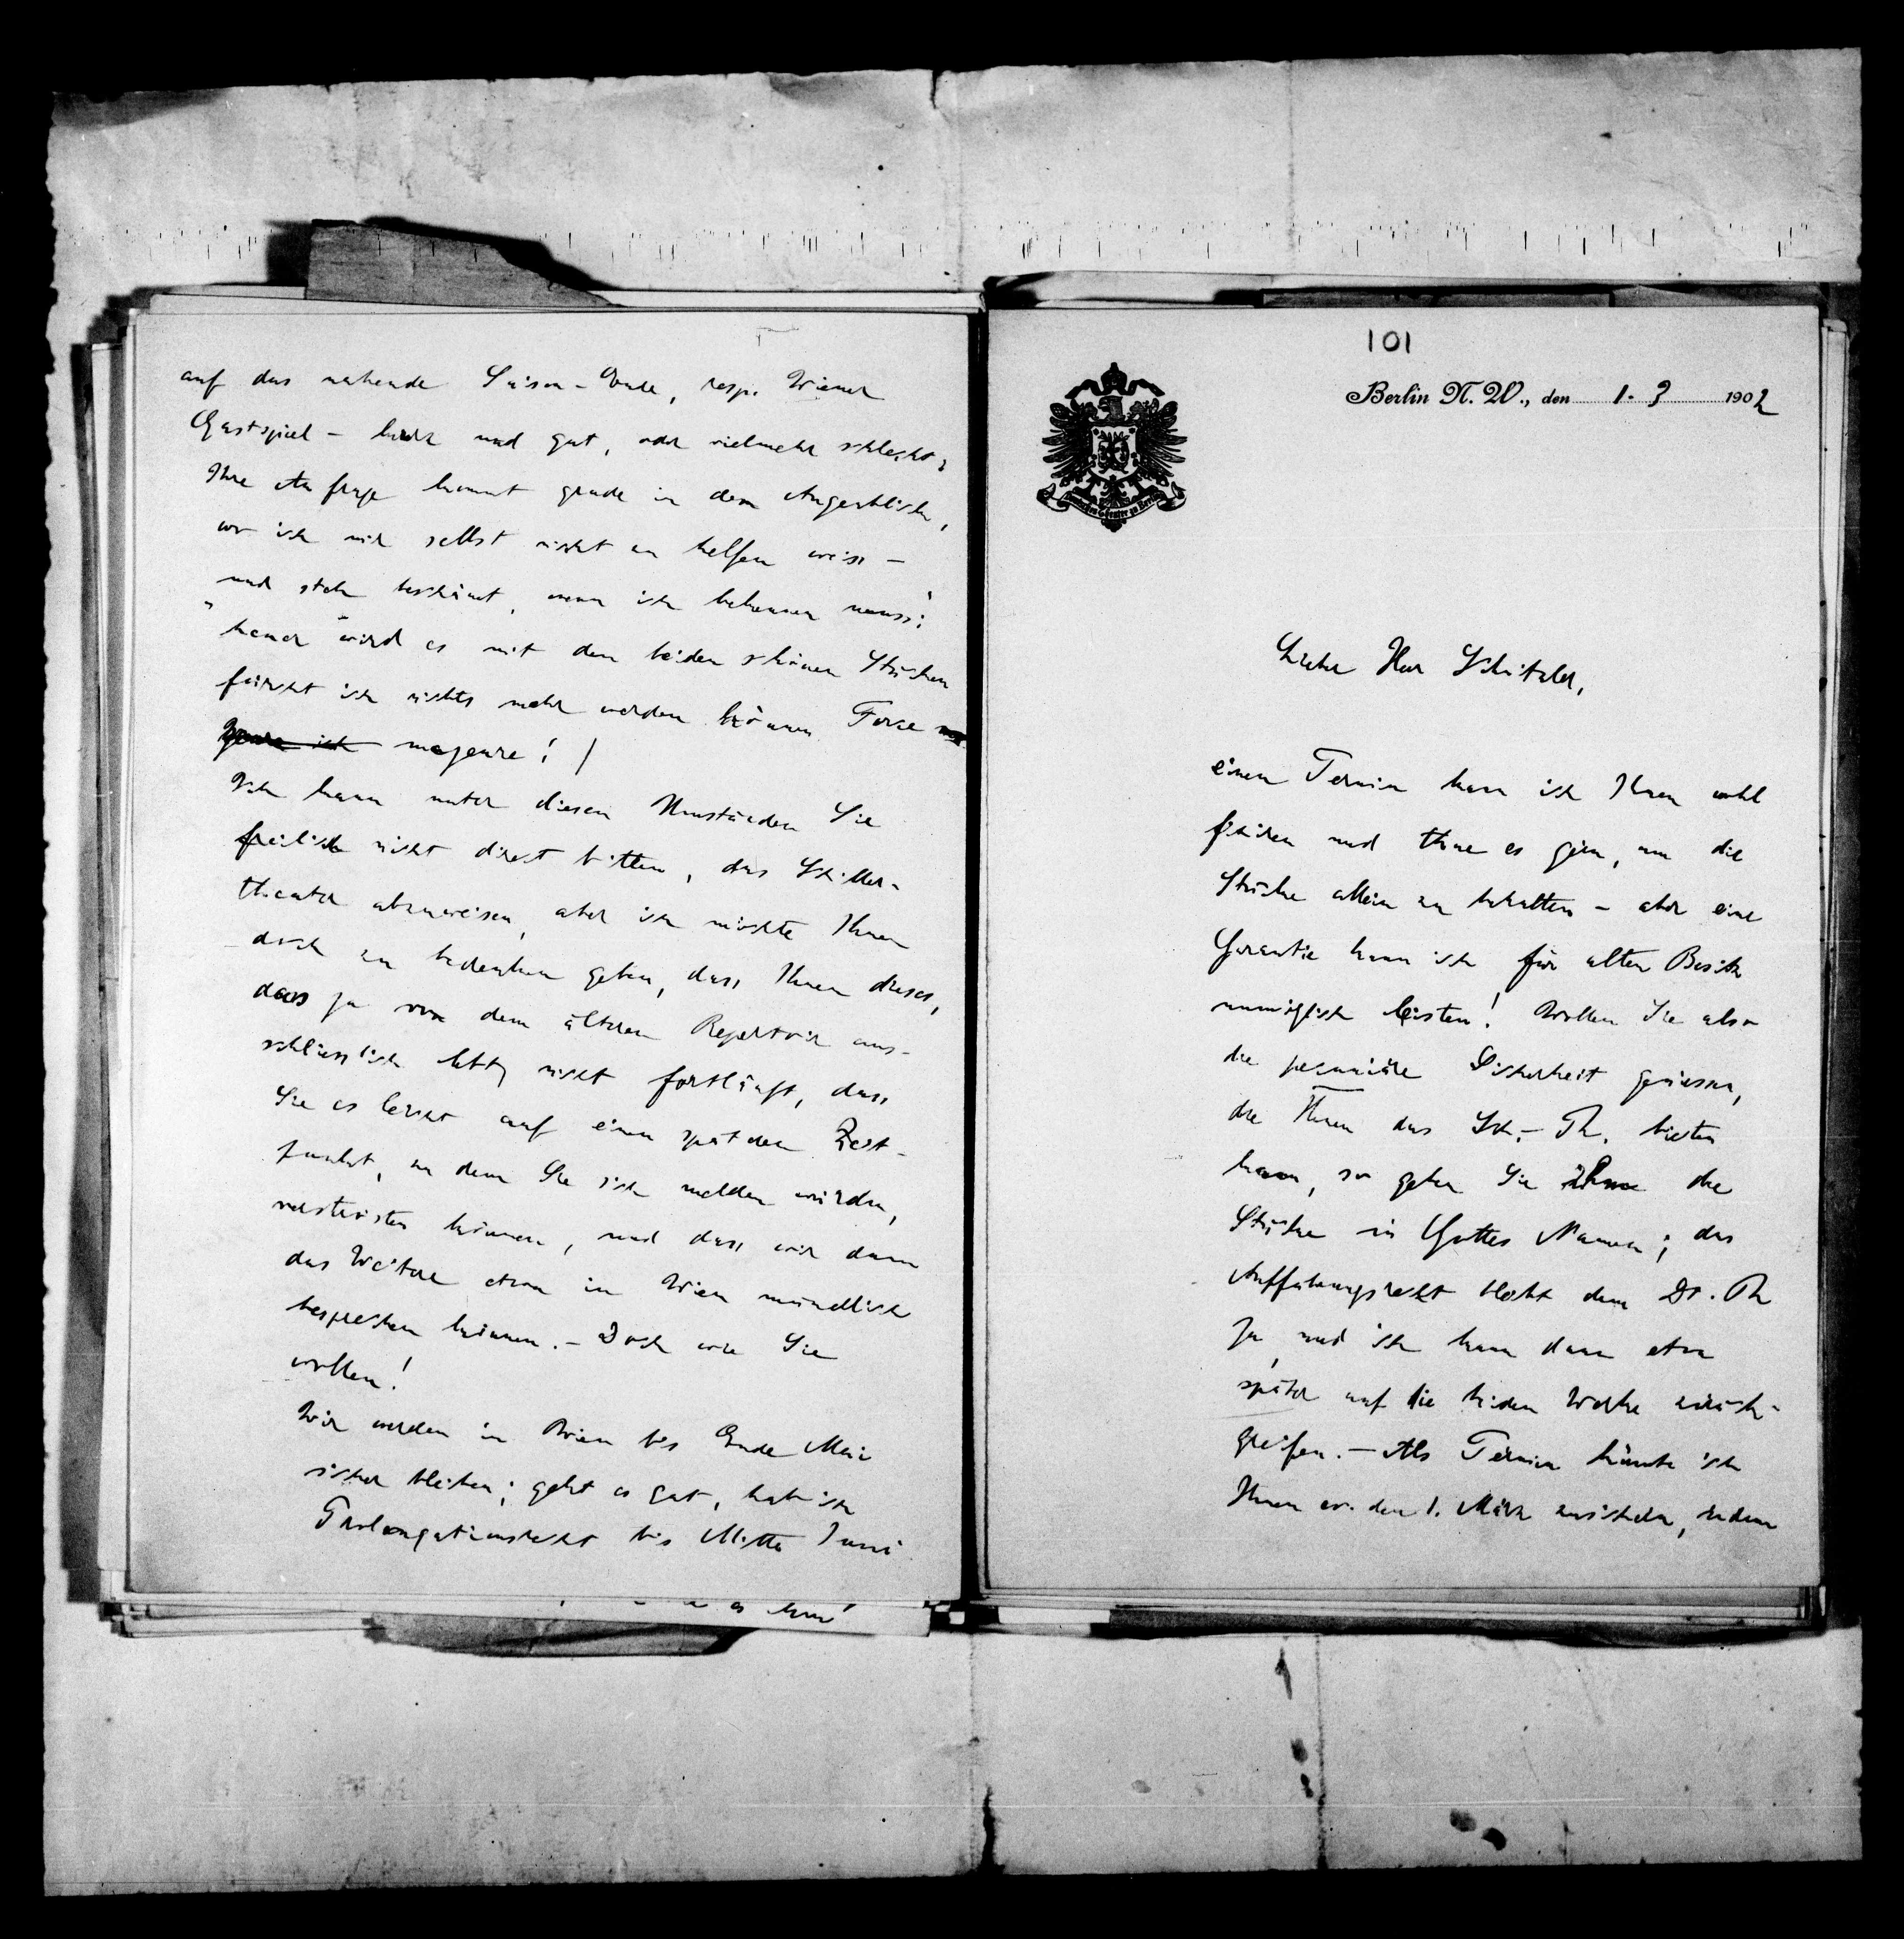 auf das nahende Saison-Ende, resp. Wiener
Gastspiel – kurz und gut, oder vielmehr schlecht:
Ihre Anfrage kommt grade in dem Augenblick,
wo ich mir selbst nicht zu helfen weiss –
und steh beschämt, wenn ich bekennen muss:
"heuer" wird es mit den beiden schönen Stücken
fürcht ich nichts mehr werden können. Force
majeure! /
Ich kann unter diesen Umständen Sie
freilich nicht direct bitten, das Schiller-
theater abzuweisen, aber ich möchte Ihnen
doch zu bedenken geben, dass Ihnen dieses,
das ja von dem älteren Repertoir aus-
schliesslich lebt, nicht fortläuft, dass
Sie es leicht auf einen späteren Zeit-
punkt, zu dem Sie sich melden würden,
vertrösten können, und dass wir dann
das Weitere etwa in Wien mündlich
besprechen können. – Doch wie Sie
wollen!
Wir werden in Wien bis Ende Mai
sicher bleiben; geht es gut, hab ich
Prolongationsrecht bis Mitte Juni
es
101
Berlin N. W., den 1. 3 1902
Deutsches Theater zu Berlin
Lieber Herr Schnitzler,
einen Termin kann ich Ihnen wohl
fixiren und thue es gern, um die
Stücke allein zu behalten – aber eine
Garantie kann ich für alten Besitz
unmöglich leisten! Wollen Sie also
die pecuniäre Sicherheit geniessen,
die Ihnen das Sch.-Th. bieten
kann, so geben Sie ihm die
Stücke in Gottes Namen; das
Aufführungsrecht bleibt dem Dt. Th
ja, und ich kann dann etwa
später auf die beiden Werke zurück-
greifen. – Als Termin könnte ich
Ihnen ev. den 1. März zusichern, indem